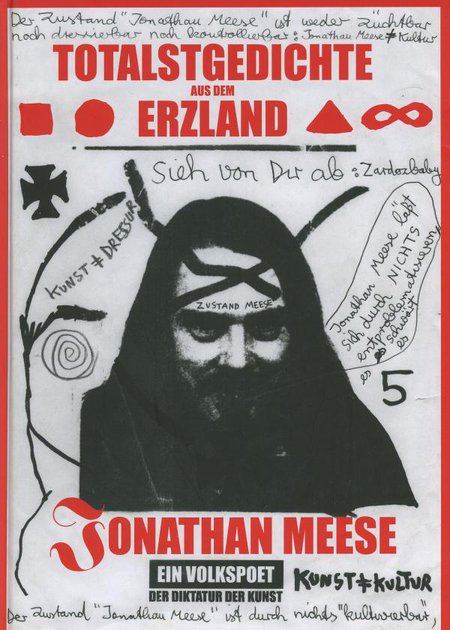 Der Zustand "Jonathan Meese" ist weder züchtbar
noch dressierbar noch kontrollierbar: Jonathan Meese ≠ Kultur
TOTALSTGEDICHTE
AUS DEM
ERZLAND
Sieh von Dir ab: Zardozbaby
KUNST ≠ DRESSUR
ZUSTAND MEESE
Jonathan Meese läßt
sich durch NICHTS
entproblematisieren,
es schweißt
es
5
JONATHAN MEESE
EIN VOLKSPOET
DER DIKTATUR DER KUNST
KUNST ≠ KULTUR
Der Zustand "Jonathan Meese" ist durch nichts "kultivierbar",